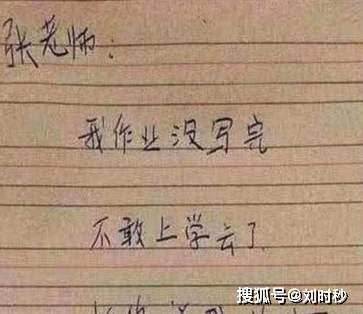 张老师：
我作业没写完
不敢上学去了
搜狐号@刘时秒